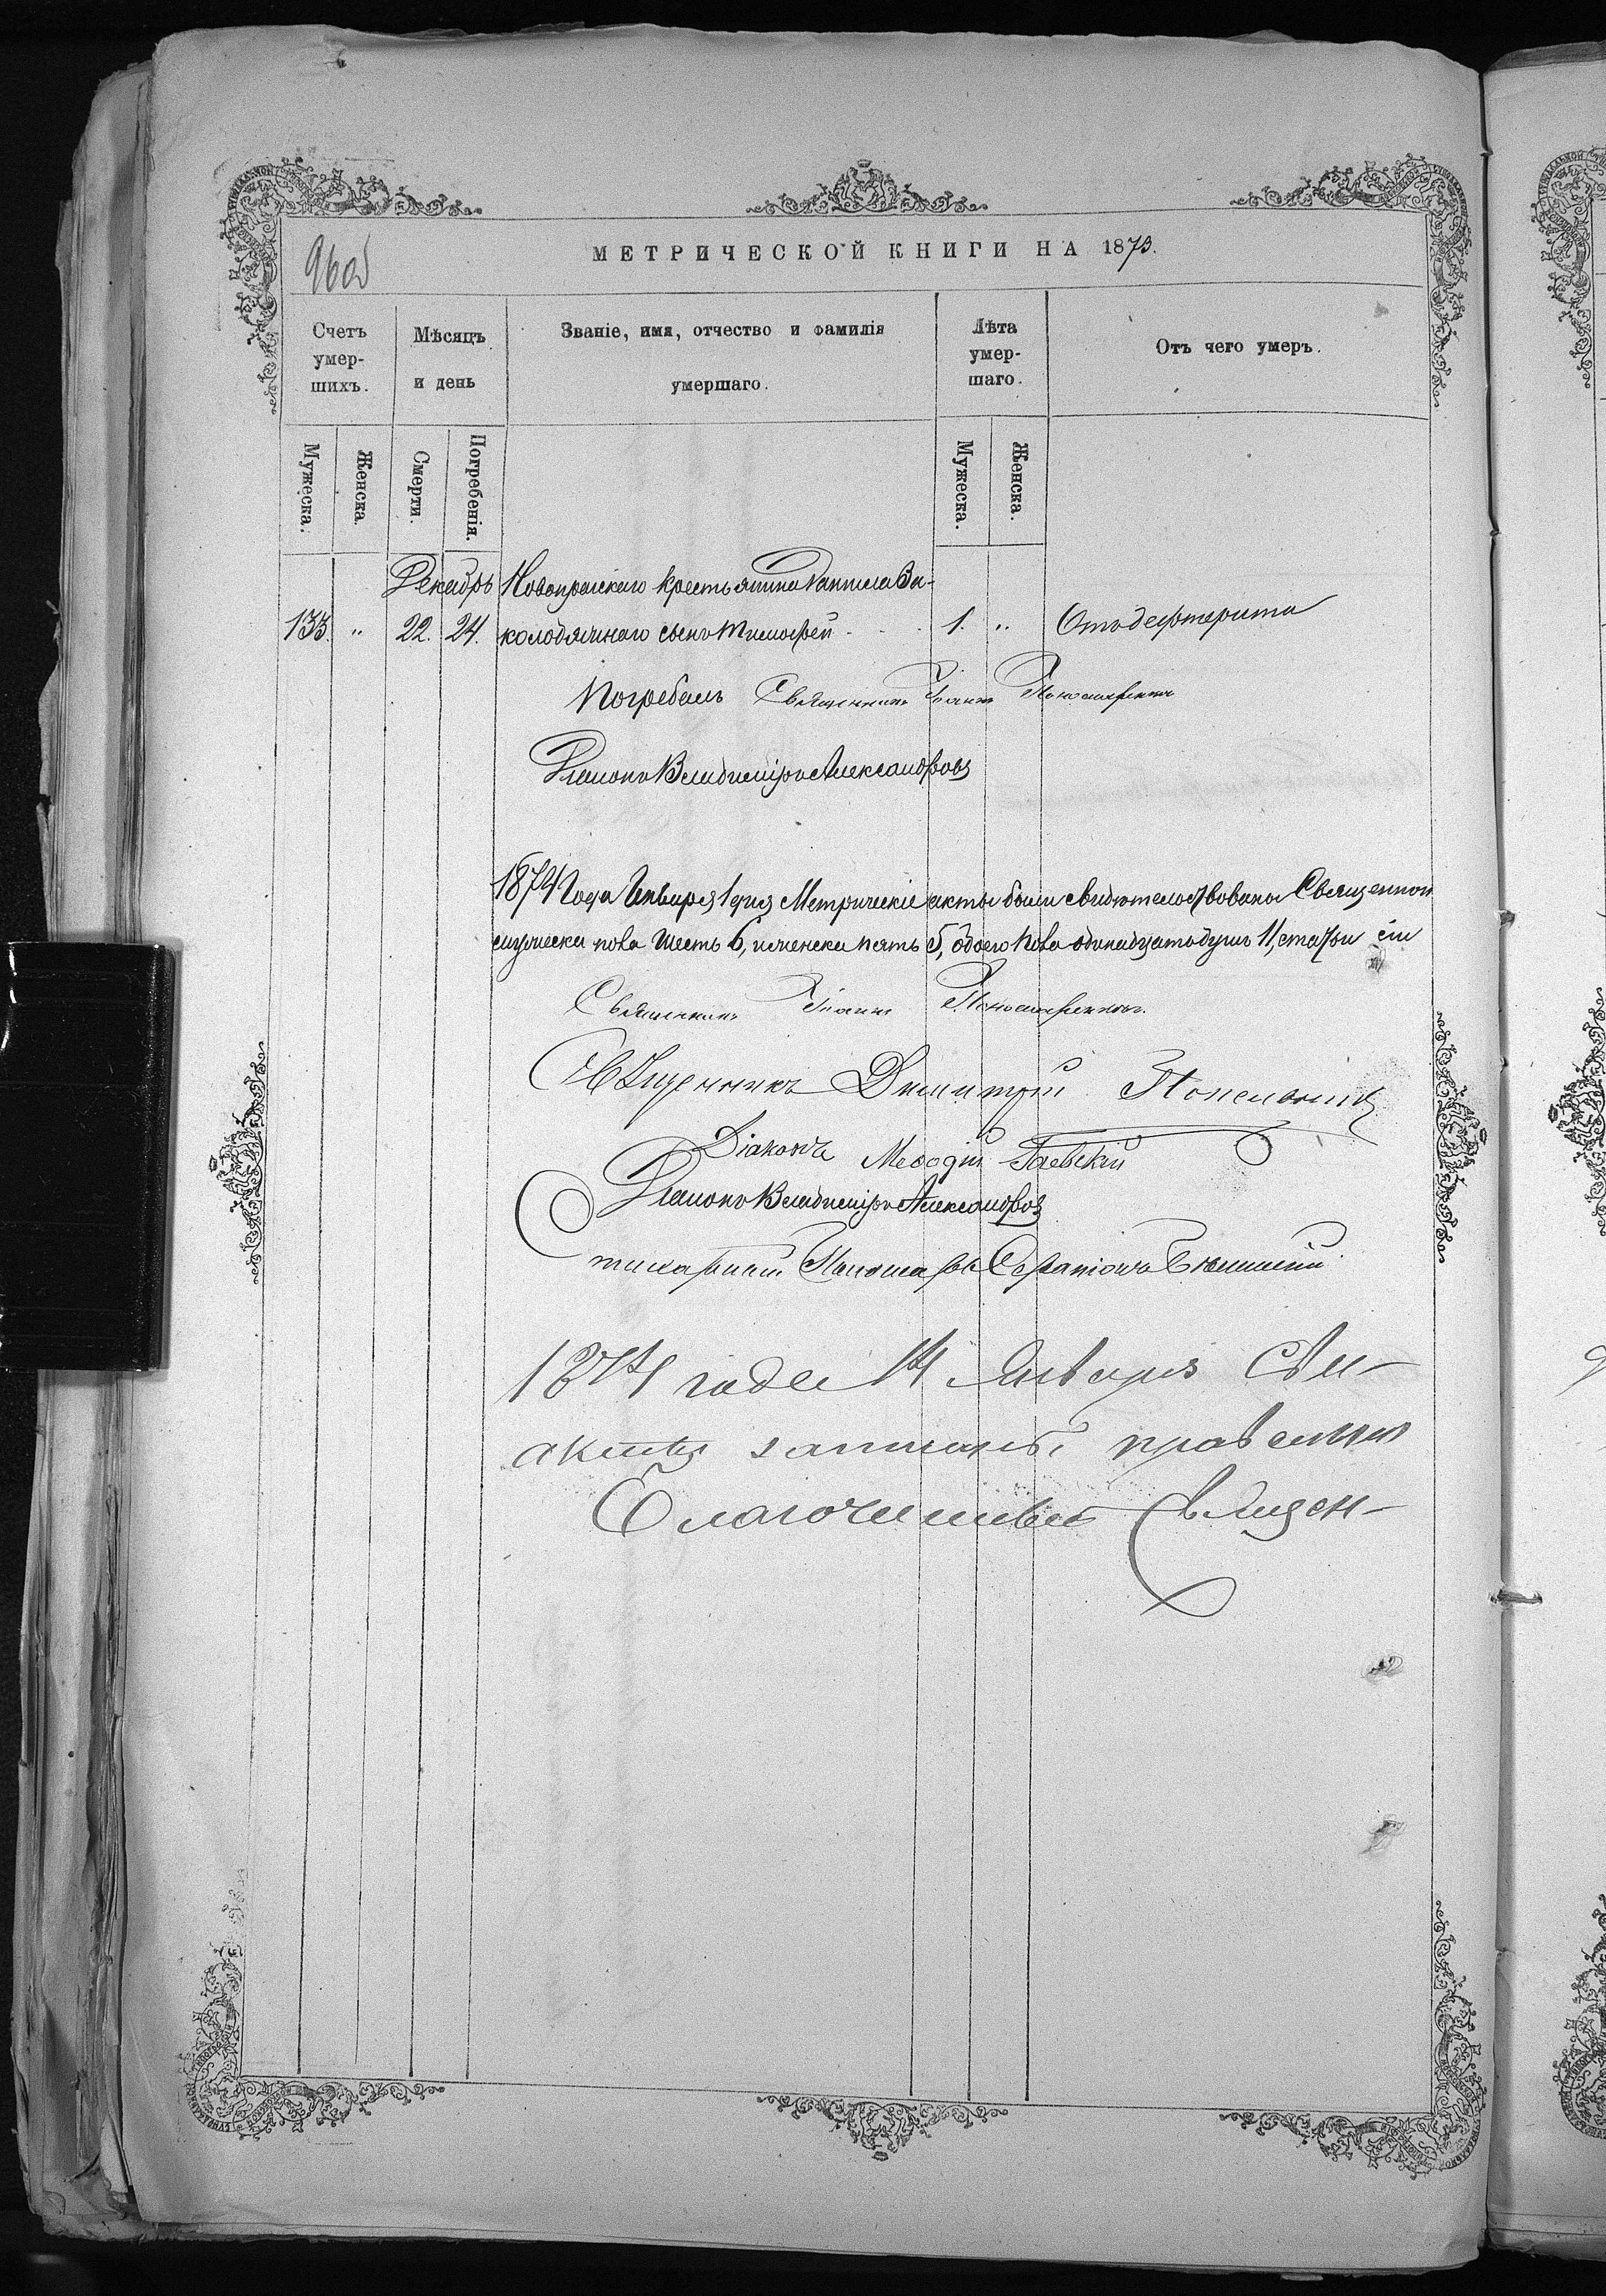 960об
МЕТРИЧЕСКОЙ КНИГИ НА 1873.
Счетъ умер-шихъ.
Мѣсяцъ и день
Званіе, имя, отчество и фамилія умершаго.
Лѣта умер-шаго.
Отъ чего умеръ.
Мужеска.
Женска.
Смерти.
Погребенія.
Мужеска.
Женска.
Декабрь Новопражскаго крестьянина Даніила За-
133. " 22. 24. колодяжнаго сынъ Тимофей 1. " Отъ дефтерита
Погребалъ Священникъ Іоаннъ Пономаренко
Діаконъ Владиміръ Александровъ
1874 Года Января 1 дня Метрическіе акты были свидѣтельствованы Священно
мужеска пола шесть 6, женска пять 5, обоего пола одинадцать душъ 11, статьи сіи
Священникъ Іоаннъ Пономаренко
Священникъ Димитрій
Діаконъ Меѳодій Гаевскій
Діаконъ Владиміръ Александровъ
Стихарный Пономарь
1874 года 14 Января Сіи
акты записаны правильно
Благочинный Священ-